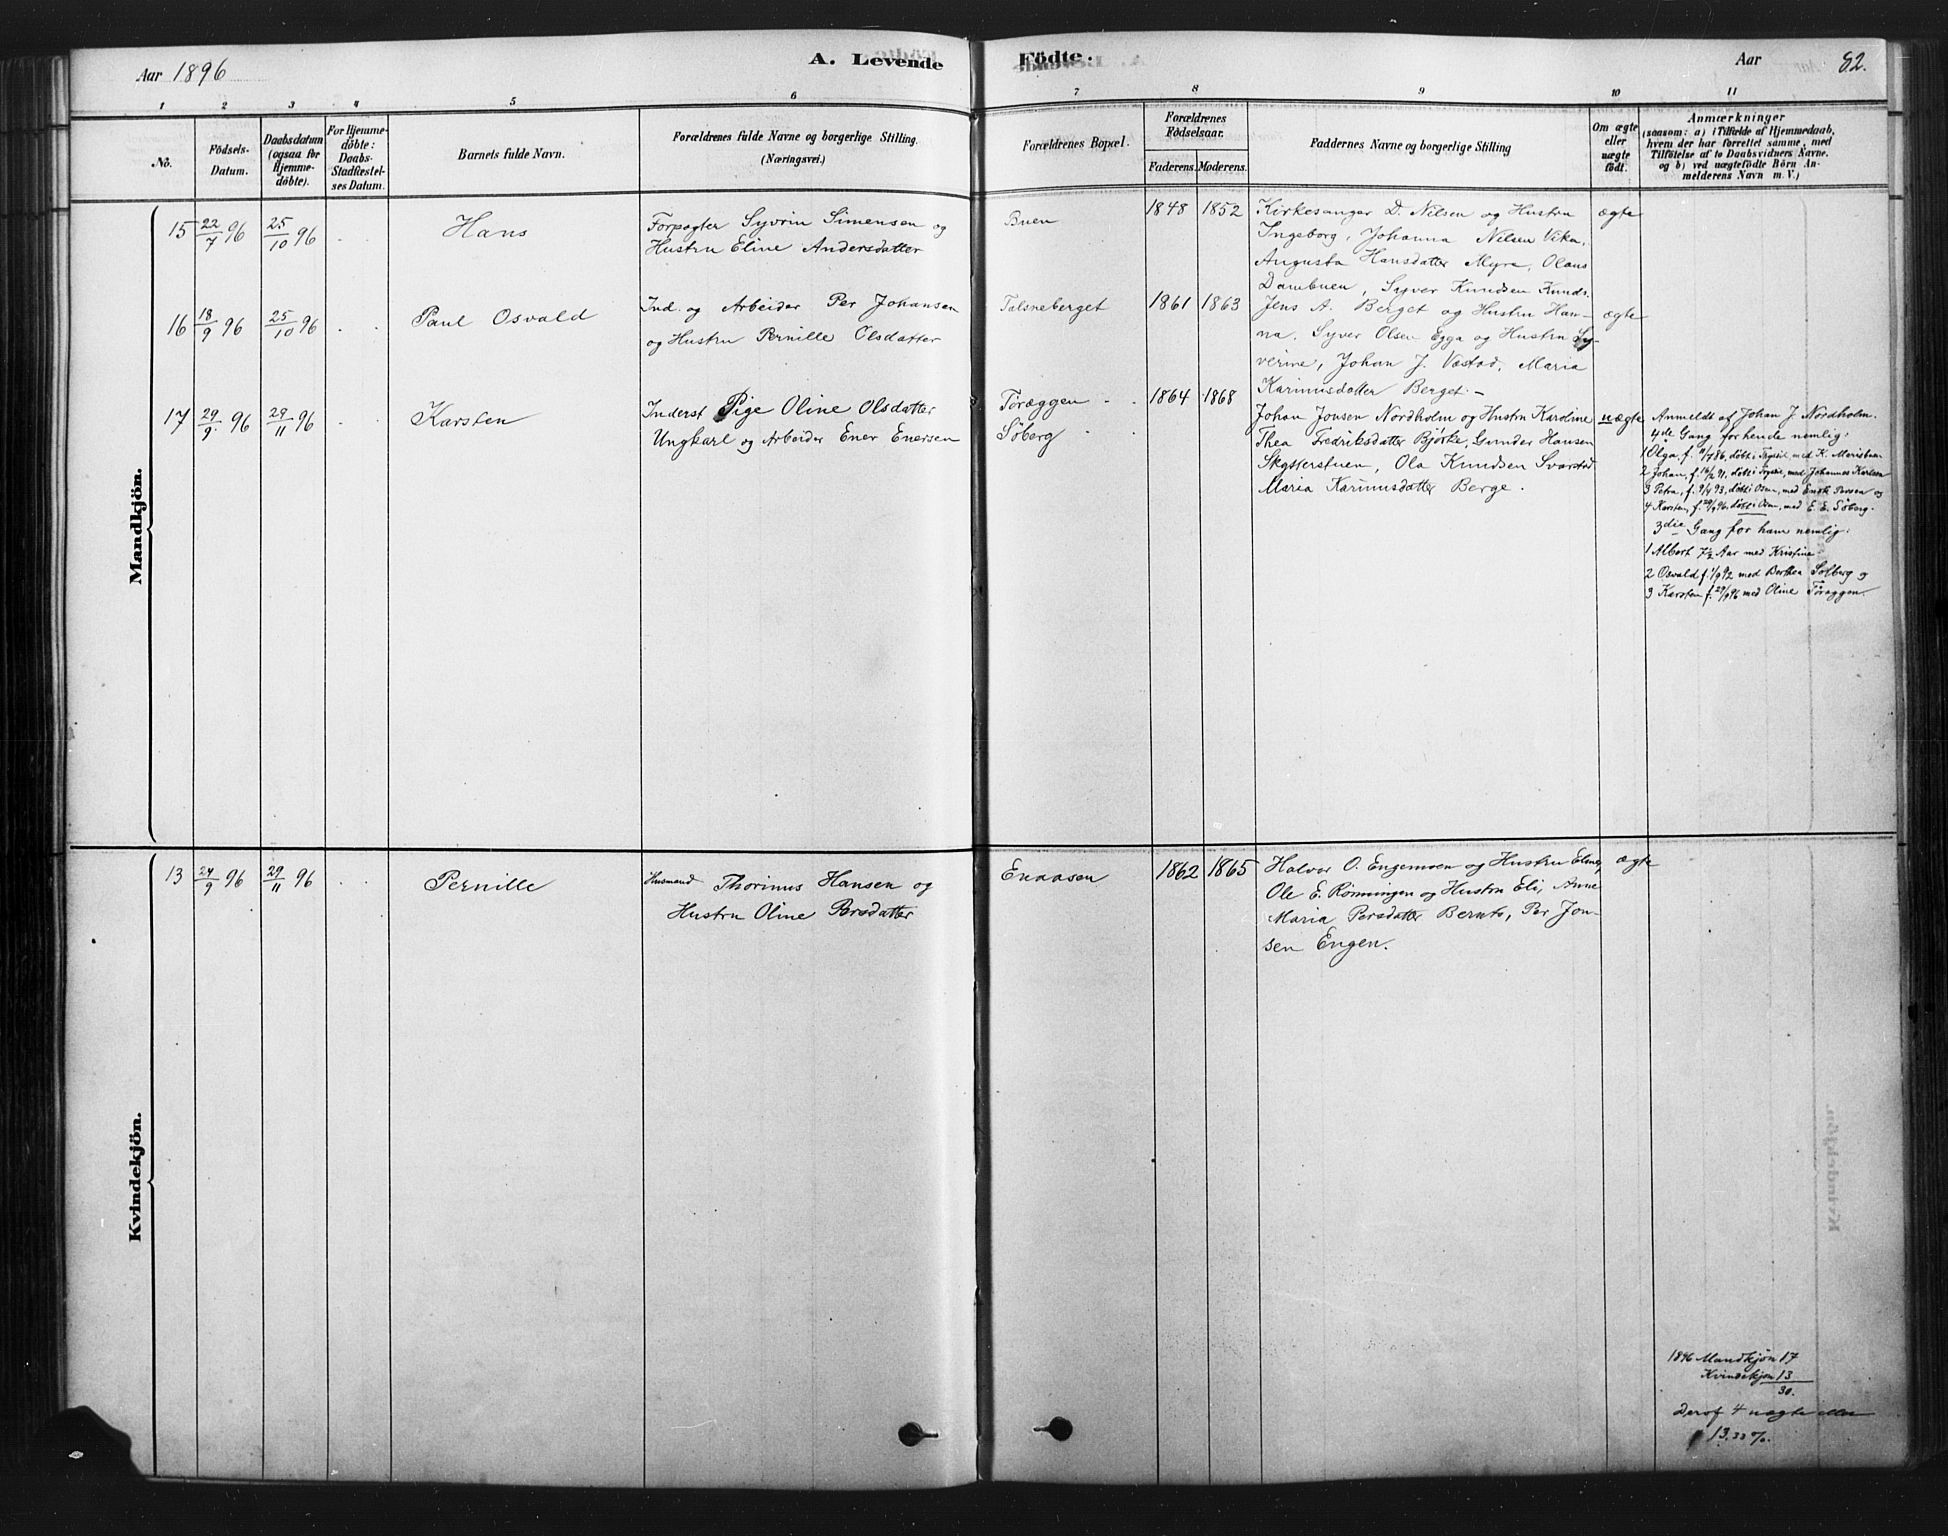 Aar 1896
A. Levende
Födte.
Aar
82.
1 2 3 4 5 6 7 8 9 10 11
No.
Födsels-
Datum.
Daabsdatum
(ogsaa for
Hjemme-
döbte).
For Hjemme-
döbte:
Daabs-
Stadfæstel-
ses Datum.
Barnets fulde Navn.
Forældrenes fulde Navne og borgerlige Stilling.
(Næringsvei.)
Forældrenes Bopæl.
Forældrenes
Födselsaar.
Faderens. Moderens.
Faddernes Navne og borgerlige Stilling
Om ægte
eller
uægte
födt.
Anmærkninger
(saasom: a) i Tilfælde af Hjemmedaab,
hvem der har forrettet samme, med
Tilföielse af to Daabsvidners Navne.
og b) ved uægtefödte Börn An-
melderens Navn m. V.)
Mandkjön.
15 22/7 96 25/10 96
Hans
Forpagter Syvrin Simensen og
Hustru Eline Andersdatter
Buen
1848 1852
Kirkesanger D. Nilsen og Hustru
Ingeborg, Johanna Nilsen Vika,
Augusta Hansdatter Myra, Olaus
Dambuen, Syver Knudsen Knuds.
ægte
16 18/9 96 25/10 96
Paul Osvald
Ind. og Arbeider Per Johansen
og Hustru Pernille Olsdatter
Talsneberget
1861 1863
Jens A. Berget og Hustru Han-
na, Syver Olsen Egga og Hustru Sy-
verine, Johan J. Vestad, Maria
Karinusdatter Berget.-
ægte
17 29/9 96 29/11 96
Karsten
Inderst Pige Oline Olsdatter
Ungkarl og Arbeider Ener Enersen
Töræggen
Söberg
1864 1868
Johan Jonsen Nordholm og Hustru Karoline
Thea Fredriksdatter Björke, Gunder Hansen
Skysterstuen, Ola Knudsen Svarstad
Maria Karinusdatter Berge.
uægte
Anmeldt af Johan J. Nordholm.
4de Gang, for hende nemlig:
1 Olga, f. 11/7 86, döbt i Trysil, med K. Morisbuen
2 Johan, f. 16/2 91, döbt i Trysil, med Johannes Karlsen
3 Petra, f. 9/4 93, döbt i Osen, med Enok Persen og
4 Karsten, f. 29/9 96, döbt i Osen, med E. E. Söberg.
3die Gang for ham nemlig:
1 Albert 7½ Aar med Kristine
2 Osvald f. 1/9 92 med Berthea Solberg og
3 Karsten f. 29/9 96 med Oline Töræggen.
Kvindekjön.
13 24/9 96 29/11 96
Pernille
Husmand Thorinus Hansen og
Hustru Oline Persdatter
Enaasen
1862 1865
Halvor O. Engemoen og Hustru Eline,
Ole E. Rönningen og Hustru Eli, Anne
Maria Persdatter Bernts, Per Jon-
sen Engen.
ægte
1896 Mandkjön 17
Kvindekjön 13
30.
Deraf 4 uægte eller
13.33%.